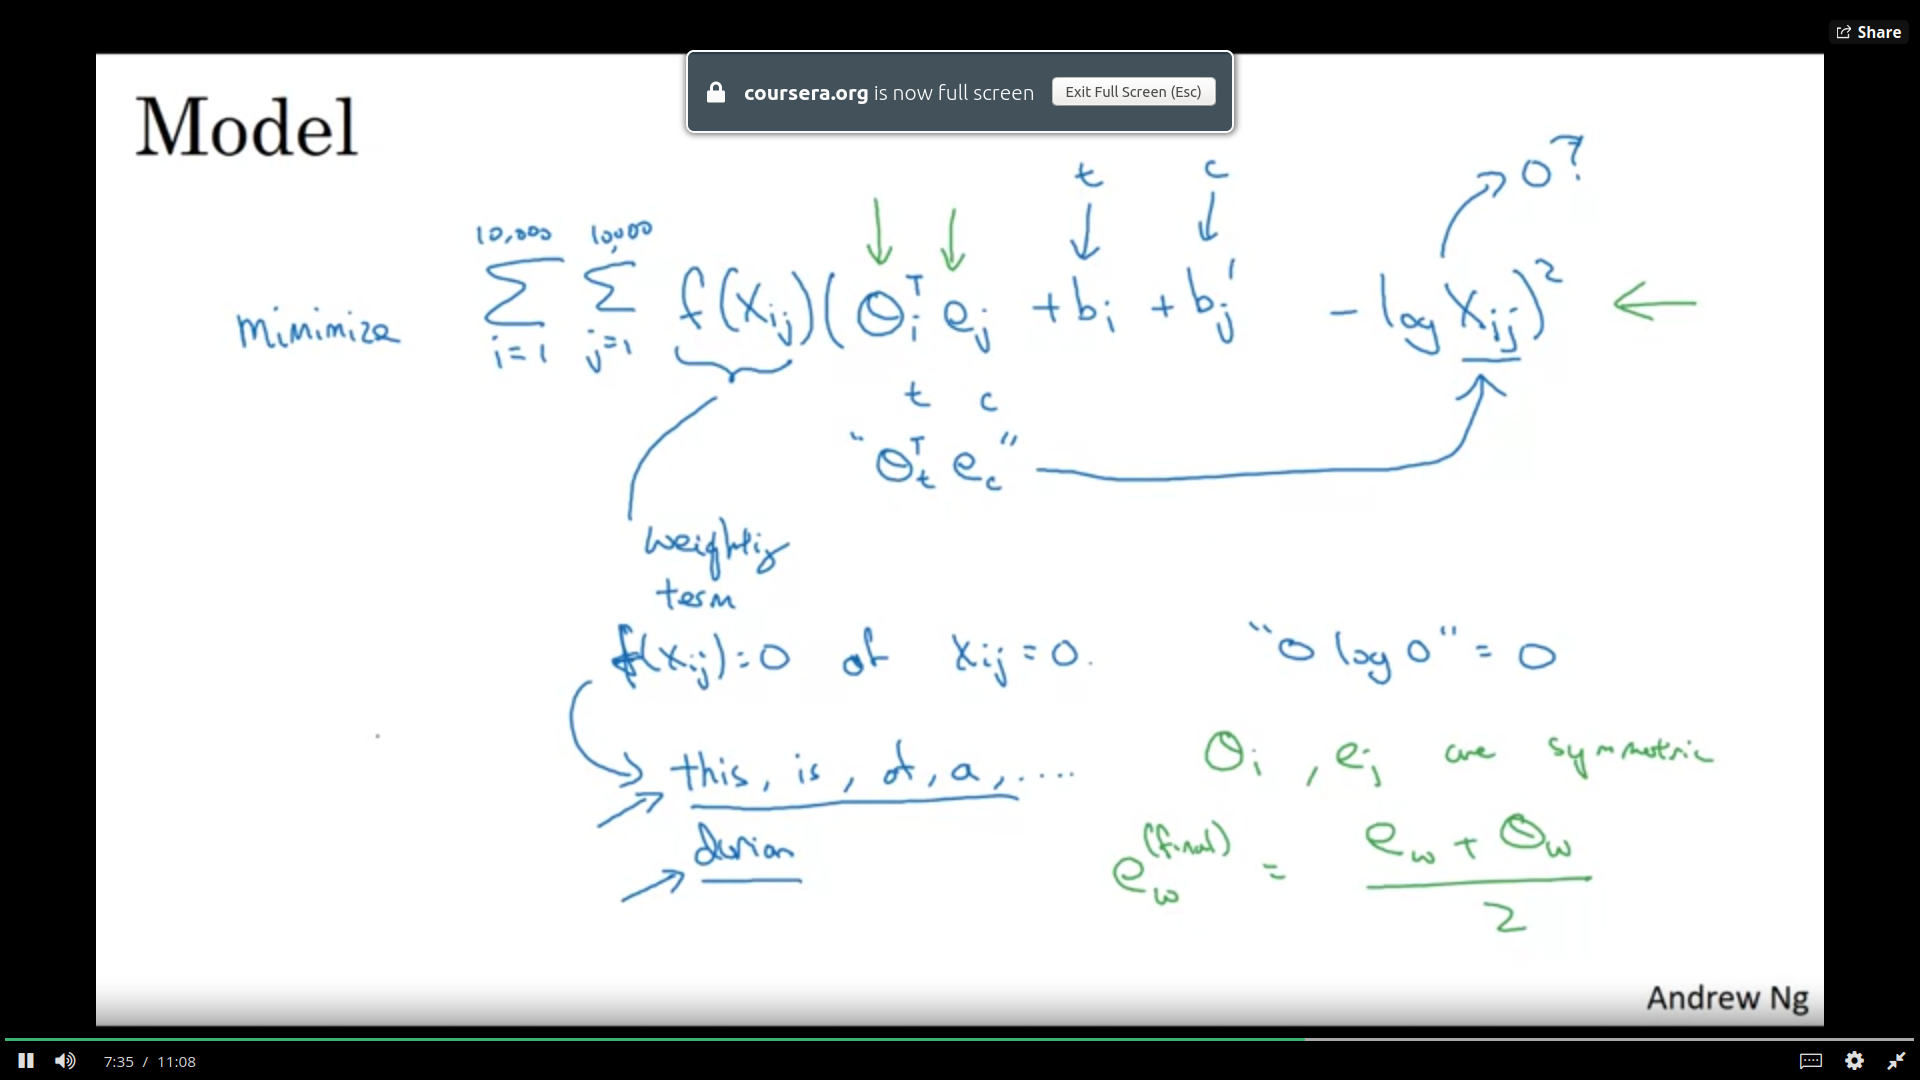 Share
coursera.org is now full screen Exit Full Screen (Esc)
Model
t c 0?
10,000 10,000
minimize Σ Σ f(Xij)(Θi^T ej + bi + bj' - log Xij)²
i=1 j=1
t c
"Θt^T ec"
weighting
term
f(Xij)=0 if Xij=0. "0 log 0" = 0
this, is, of, a, .... Θi, ej are symmetric
durian
ew^(final) = (ew + Θw) / 2
Andrew Ng
7:35 / 11:08